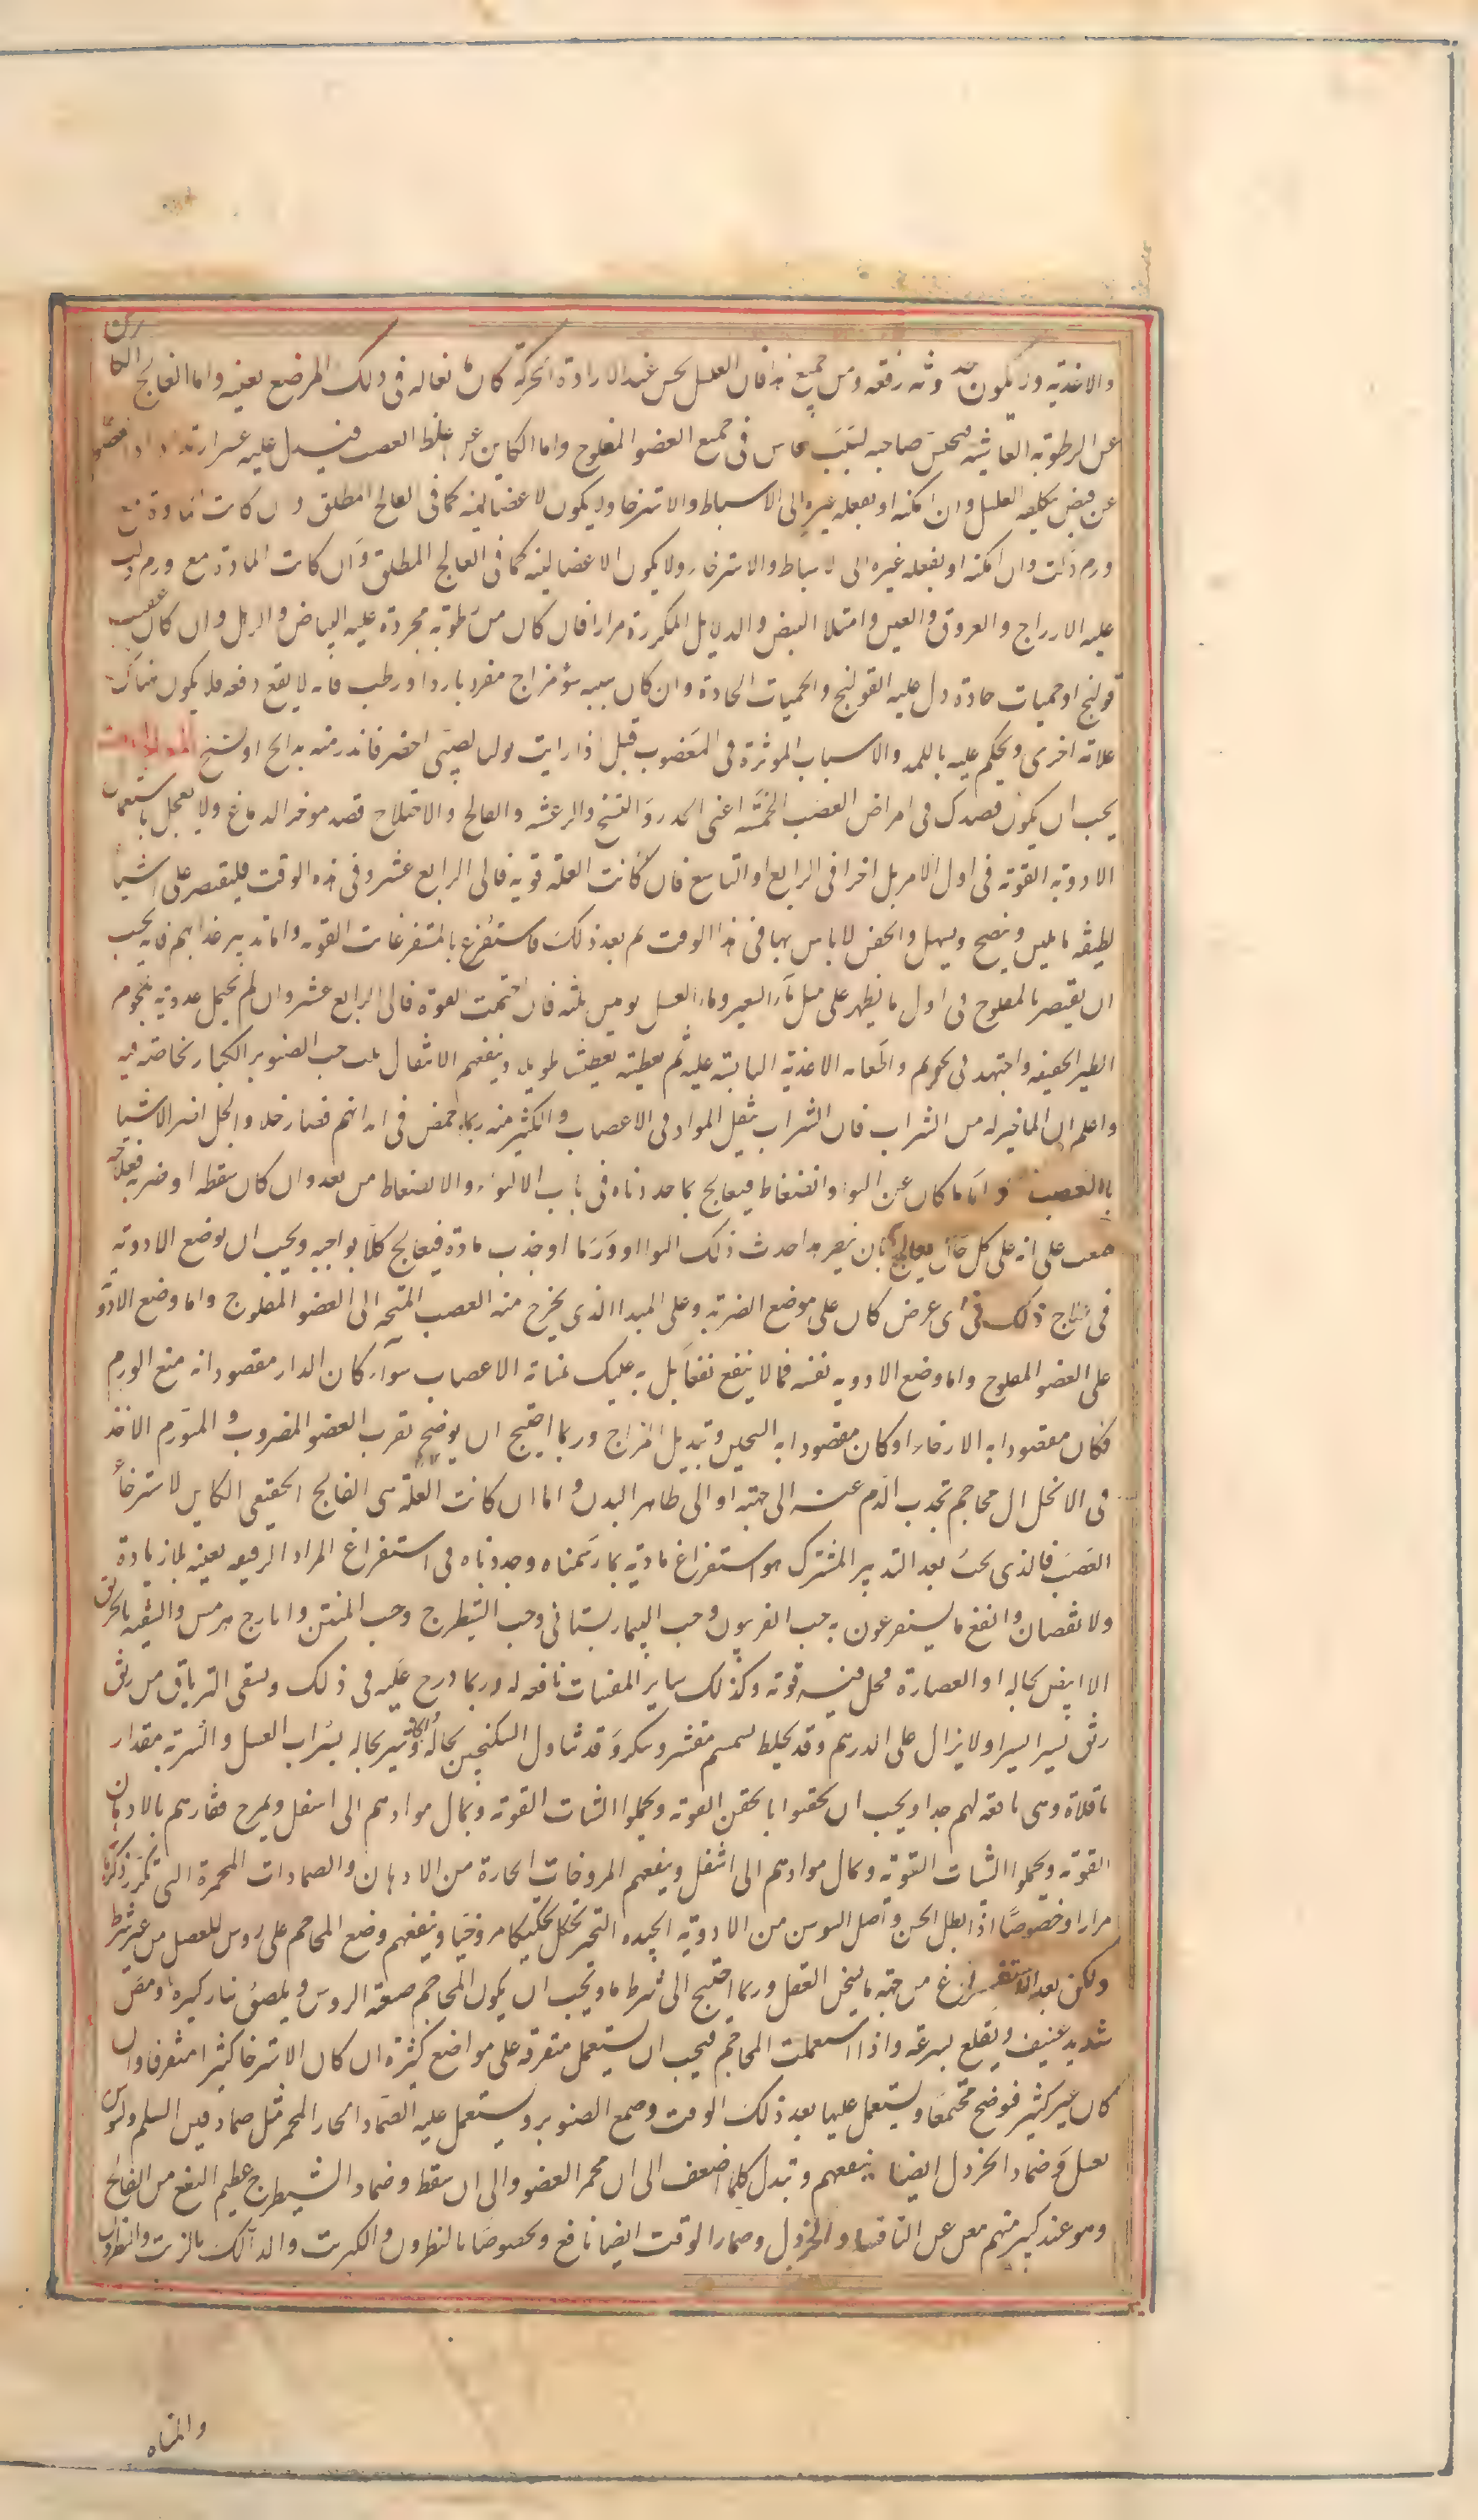 والاغذيه وان يكون حدوثه دفعه ومن جميع هذا فان العليل يحس عند الارادة الحركة كان ثم نعاله في ذلك الموضع بعينه واما الفالج الكائن
عن الرطوبه الفاشيه فيحس صاحبه بسبب فاش في جميع العضو المفلوج واما الكاين عن غلظ العصب فيدل عليه عسر ارتداد العضو
عن قبض تكلفه العليل وان امكنه او بفعله غيره الى الانبساط والاسترخا ولا يكون الاعضا لينه كما في الفالج المطلق وان كانت المادة مع
ورم دلت وان امكنه او بفعله غيره الى الانبساط والاسترخاء ولا يكون الاعضا لينه كما في الفالج المطلق وان كانت المادة مع ورم دلت
عليه الاوداج والعروق والعين وامتلا النبض والدلايل المكررة مرارا فان كان من رطوبه مجردة عليه البياض والرهل وان كان عقيب
قولنج او حميات حادة دل عليه القولنج والحميات الحادة وان كان سببه سؤ مزاج مفرد بارد او رطب فانه لا يقع دفعه فلا يكون هناك
علامه اخرى ويحكم عليه باللمس والاسباب الموثرة في العضو قيل اذا رايت بول الصبي اخضر فانذر منه بفالج او تشنج المعالجات
يجب ان يكون قصدك في امراض العصب الخمسه اعنى الخدر والتشنج والرعشه والفالج والاختلاج قصد موخر الدماغ ولا يعجل باستعمال
الادويه القويه في اول الامر بل اخر الى الرابع او السابع فان كانت العله قويه فالى الرابع عشر وفي هذه الوقت فليقتصر على اشيا
لطيفه ما يلين وينضج ويسهل والحقن لا باس بها في هذا الوقت ثم بعد ذلك فاستفرغ بالمستفرغات القويه واما تدبير غذائهم فانه يجب
ان يقتصر بالمفلوج في اول ما يظهر على مثل ماء الشعير وماء العسل يومين ثلثه فان احتملت القوة فالى الرابع عشر وان لم يحتمل غذوته بلحوم
الطير الخفيفه واجتهد في تجويعهم واطعامه الاغذية اليابسة عليه ثم تعطيشه تعطيشا طويلا وينفعهم الانتقال بلب حب الصنوبر الكبار لخاصة فيه
واعلم ان الما خير له من الشراب فان الشراب ينقل المواد في الاعصاب والكثير منه ربما حمض في ابدانهم فصار خلا والخل اضر الاشيا
بالعصب واما ما كان عن التواء وانضغاط فيعالج بما حددناه في باب الالتواء والانضغاط من بعد وان كان سقطه او ضربه فعلاجه
صعب على انه على كل حال يعالج بان ينظر هل احدث ذلك التواا او ورما او جذب مادة فيعالج كلا بواجبه ويجب ان يوضع الادويه
في علاج ذلك في اى عرض كان على موضع الضربه وعلى المبدا الذى يخرج منه العصب المتجه الى العضو المفلوج واما وضع الادو
على العضو المفلوج واما وضع الادويه نفسه فما لا ينفع نفعا يعتد به عليك بمنابت الاعصاب سواء كان الدوا مقصودا به منع الورم
فكان مقصودا به الارخاء او كان مقصودا به التحليل وتبديل المزاج وربما احتيج ان يوضع بقرب العضو المضروب والمتورم الاخذ
في الانحلال محاجم تجذب الدم عنه الى جهته او الى ظاهر البدن واما ان كانت العله هى الفالج الحقيقى الكاين لاسترخاء
العصب فالذى يجب بعد التدبير المشترك هو استفراغ مادته بما رسمناه وحددناه في استفراغ المواد الرقيقه بعينه بلا زيادة
ولا نقصان وانفع ما يستفرغون به حب الفربيون وحب البيمارستانى وحب الشيطرج وحب المنتن وايارج هرمس والتنقيه بالخربق
الابيض بحاله او العصارة فجل فيه قوته وكذلك ساير المقيات نافعه له وربما درج عليه في ذلك وسقى الترياق من ربع
ربع يسيرا يسيرا ولا يزال على الدرهم وقد يخلط سمسم مقشر وسكر وقد تناول السكنجبين بحاله والجاوشير بحاله بشراب العسل والشربه مقدار
باقلاة وهى نافعه لهم جدا ويجب ان يحقنوا بالحقن القويه ويحملوا الشافات القويه ويمال موادهم الى اسفل ويمرخ فقارهم بالادهان
القويه ويحملوا الشافات القويه ويمال موادهم الى اسفل وينفعهم المروخات الحارة من الادهان والضمادات المحمرة التى تكرر ذكرها
مرارا وخصوصا اذا بطل الحس واصل السوسن من الادويه الجيده التحمر تحكيكا مروخيا وينفعهم وضع المحاجم على روس العضل من غير شرط
ولكن بعد الاستفراغ من جهة ما يسخن العضل وربما احتيج الى شرط ما ويجب ان يكون المحاجم ضيقه الروس ويلصق بنار كثيرة ومص
شديد عنيف ويقلع بسرعة واذا استعملت المحاجم فيجب ان يستعمل متفرقه على مواضع كثيرة ان كان الاسترخا كثيرا متفرقا وان
كان غير كثير فوضع مجتمعا ويستعمل عليها بعد ذلك الزفت وصمغ الصنوبر ويستعمل عليه الضماد الحار المحمر مثل ضماد دقيق الشيلم ولسوس
بعسل وضماد الخردل ايضا ينفعهم وتبدل كلما اضعف الى ان يحمر العضو والى ان يتنقط وضماد الشيطرج عظيم النفع من الفالج
وهو عند كثير منهم مغن عن الثافسيا والخردل وضماد الزفت ايضا نافع وخصوصا بالنطرون والكبريت والدلك بالزيت والنطرون
والمياه